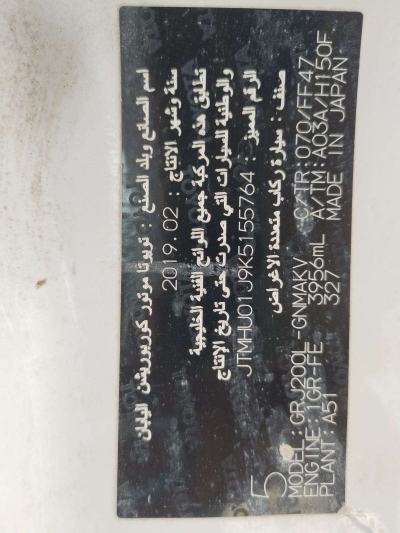 اسم الصانع وبلد الصنع : تويوتا موتور كوربوريشن اليابان
سنة وشهر الانتاج : 2019.02
تطابق هذه المركبة جميع اللوائح الفنية الخليجية
والوطنية للسيارات التي صدرت حتى تاريخ الإنتاج
الرقم المميز : JTMHU01J9K5155764
صنف : سيارة ركاب متعددة الاغراض
5
MODEL:GRJ200L -GNMAKV C/TR:070/FF47
ENGINE:1GR-FE 3956mL A/TM:A03A/H150F
PLANT:A51 327 MADE IN JAPAN